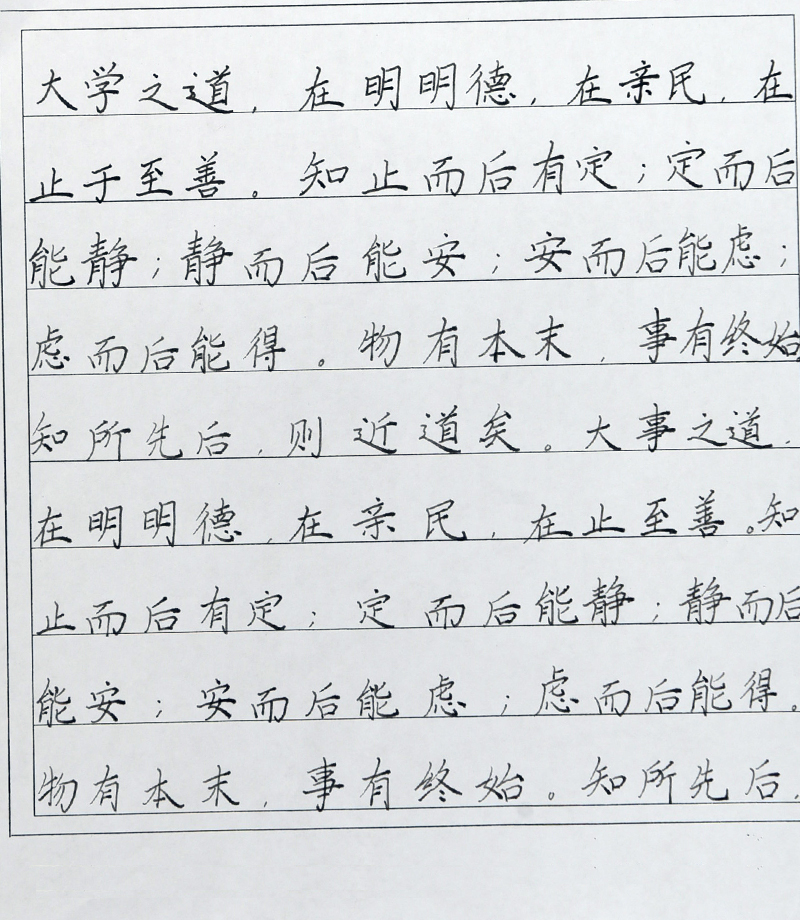 大学之道，在明明德，在亲民，在
止于至善。知止而后有定；定而后
能静；静而后能安；安而后能虑；
虑而后能得。物有本末，事有终始
知所先后，则近道矣。大事之道，
在明明德，在亲民，在止至善。知
止而后有定；定而后能静；静而后
能安；安而后能虑；虑而后能得。
物有本末，事有终始。知所先后，